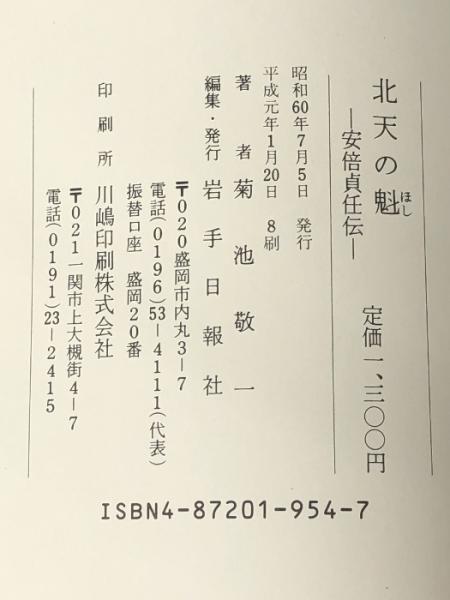 北天の魁
ほし
―安倍貞任伝―
定価一、三〇〇円
昭和60年7月5日 発行
平成元年1月20日 8刷
著者 菊池敬一
編集・発行 岩手日報社
〒020盛岡市内丸3―7
電話(0196)53―4111(代表)
振替口座 盛岡20番
印刷所 川嶋印刷株式会社
〒021一関市上大槻街4―7
電話(0191)23―2415
ISBN4-87201-954-7